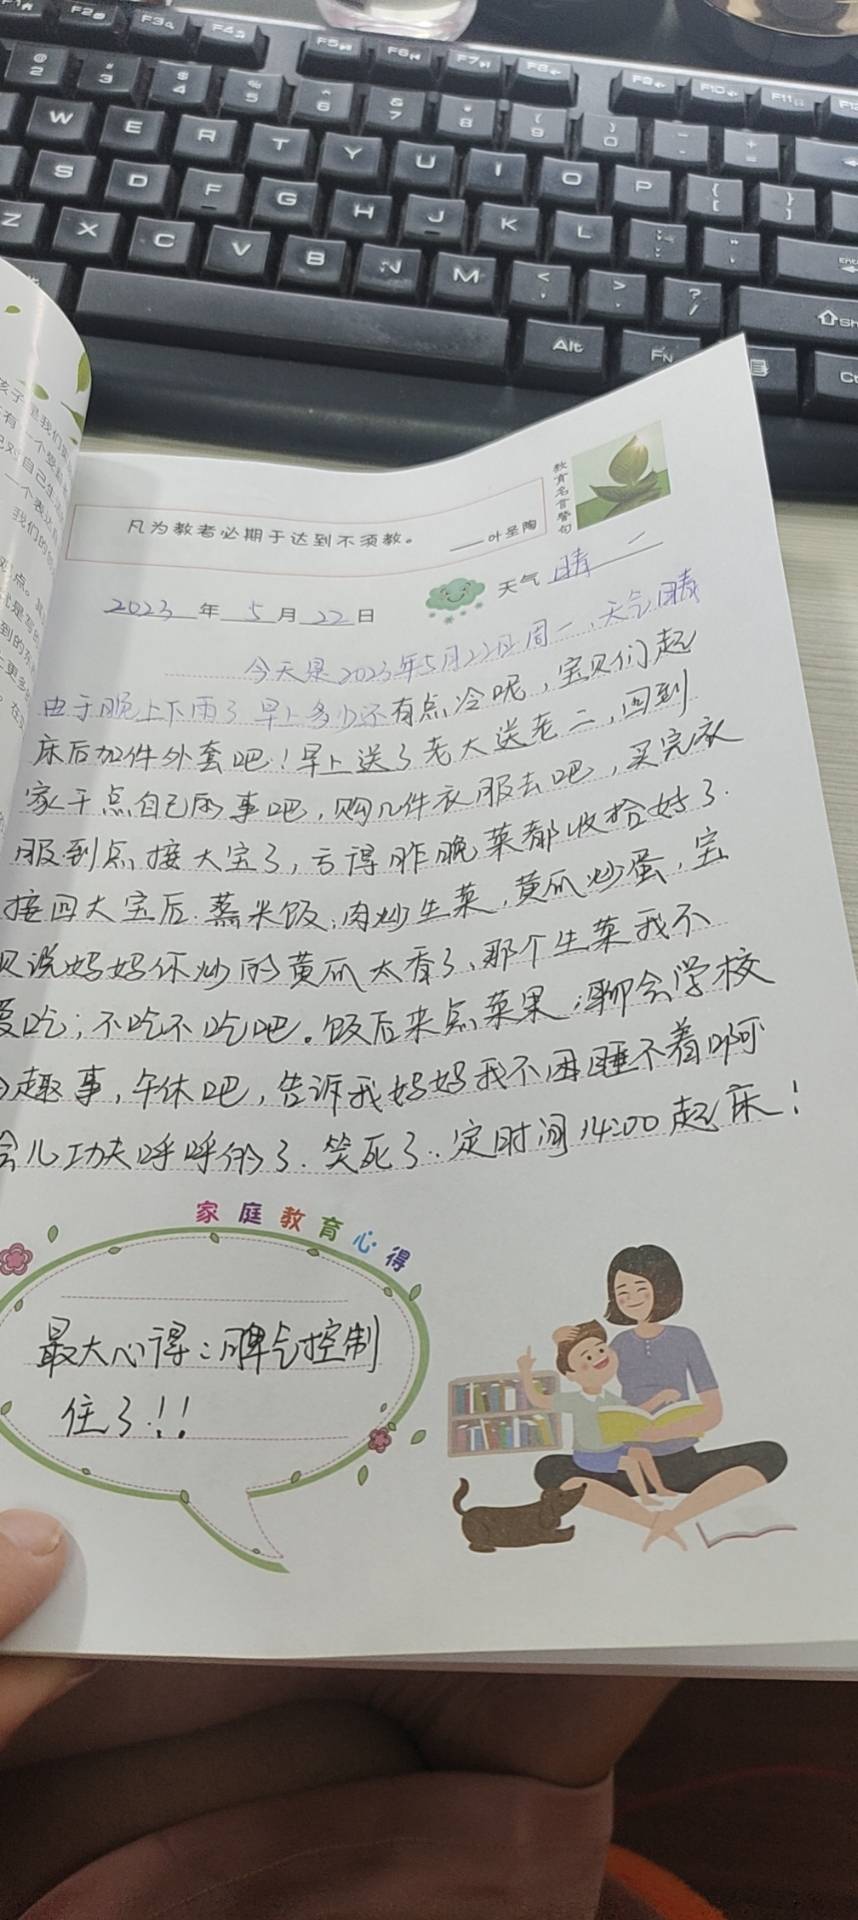 F2
F3
F4
F5
F6
F7
F8
F9
F10
F11
@ 2
# 3
$ 4
% 5
^ 6
& 7
* 8
( 9
) 0
W E R T Y U I O P
S D F G H J K L
Z X C V B N M
Alt
FN
凡为教者必期于达到不须教。
——叶圣陶
教育名言警句
2023 年 5 月 22 日
天气 晴
今天是2023年5月22日周一、天气晴
由于晚上下雨了早上多少还有点冷呢，宝贝们起
床后加件外套吧！早上送了老大送老二，回到
家干点自己的事吧，购几件衣服去吧，买完衣
服到点接大宝了，亏得昨晚菜都收拾好了.
接回大宝后.蒸米饭，肉炒生菜，黄瓜炒蛋，宝
贝说妈妈你炒的黄瓜太香了、那个生菜我不
爱吃；不吃不吃吧。饭后来点菜果；聊会学校
趣事，午休吧，告诉我妈妈我不困睡不着啊
会儿功夫呼呼的了.笑死了..定时间14:00起床！
家庭教育心得
最大心得：脾气控制
住了!!